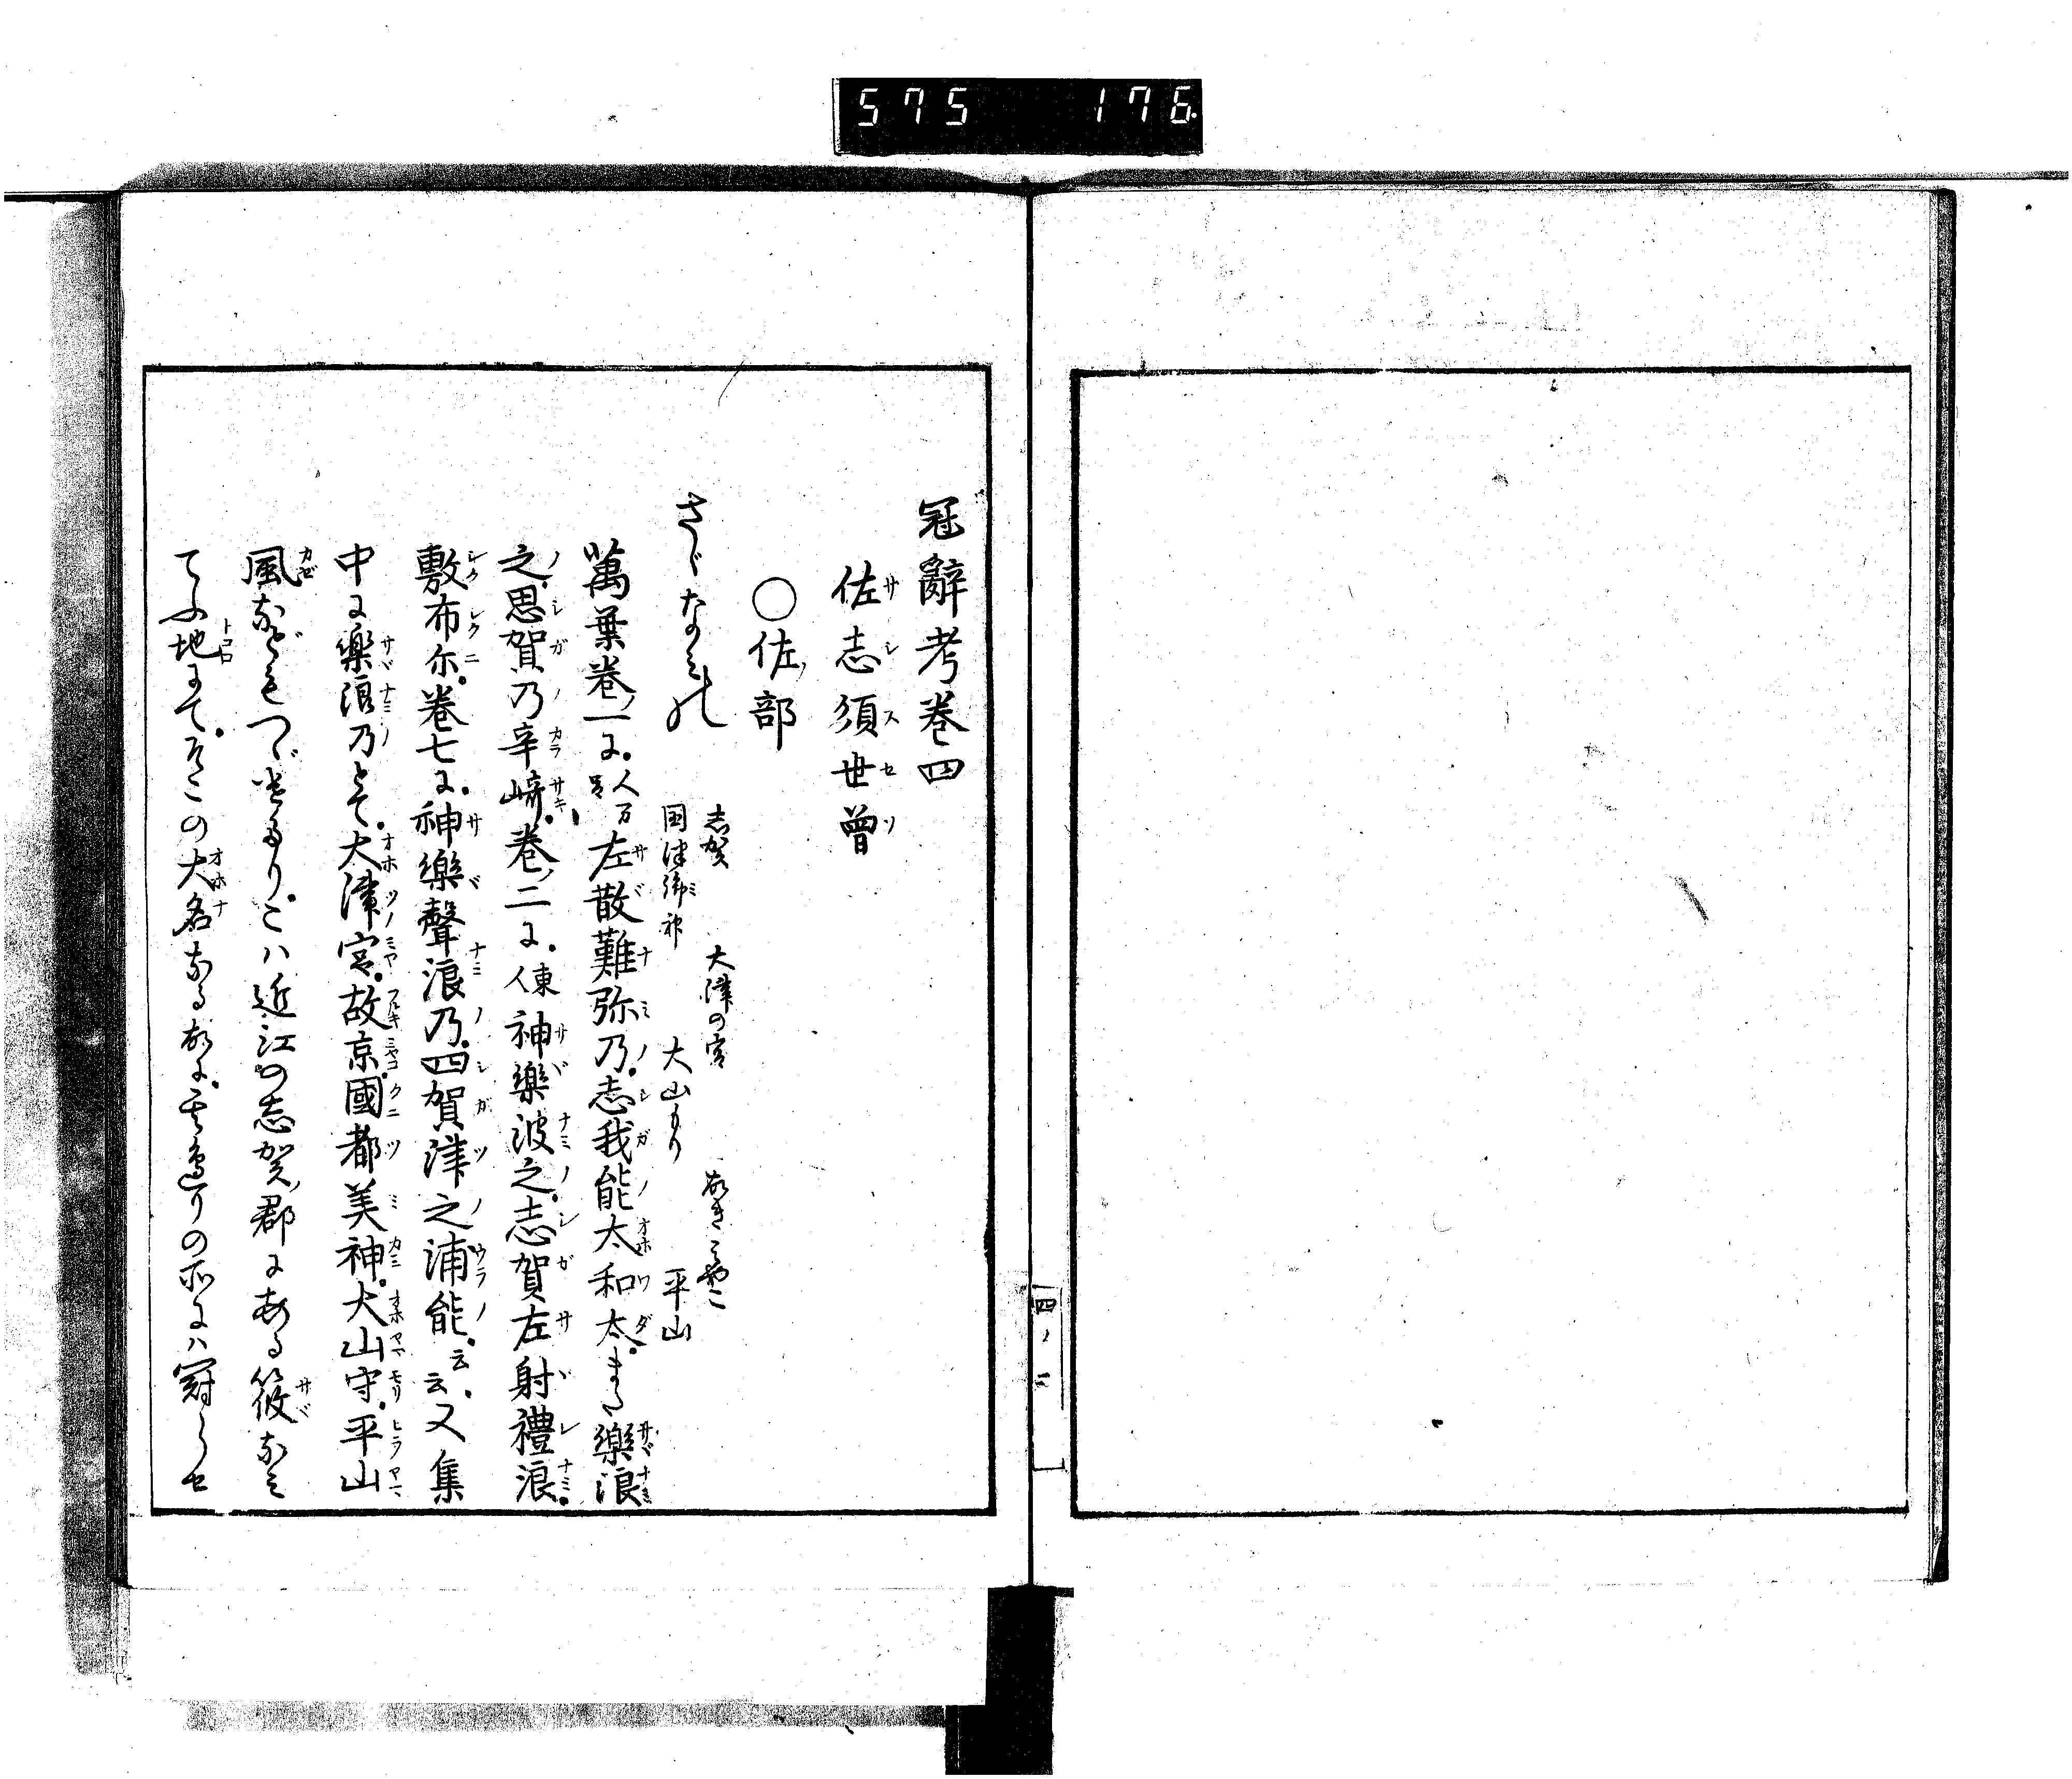 575 176
冠辭考巻四
佐志須世曾
サシスセソ
○佐ノ部
さゞなみの
志賀 大津の宮 故きみやこ
国津御神 大山もり 平山
萬葉巻ノ一に。人万呂左散難弥乃。志我能太和太。また樂浪
之。思賀乃辛﨑。巻ノ二に。東人神樂波之。志賀左射禮浪。
敷布尓。巻七に。神樂聲浪乃。四賀津之浦能。云云。又集
中に樂浪乃とて。大津宮。故京。國都美神。大山守。平山
風などもつゞけたり。こハ近江の志賀ノ郡にある筱なみ
てふ地にて。そこの大名なる故に。其邊りの所にハ冠らせ
四ノ一